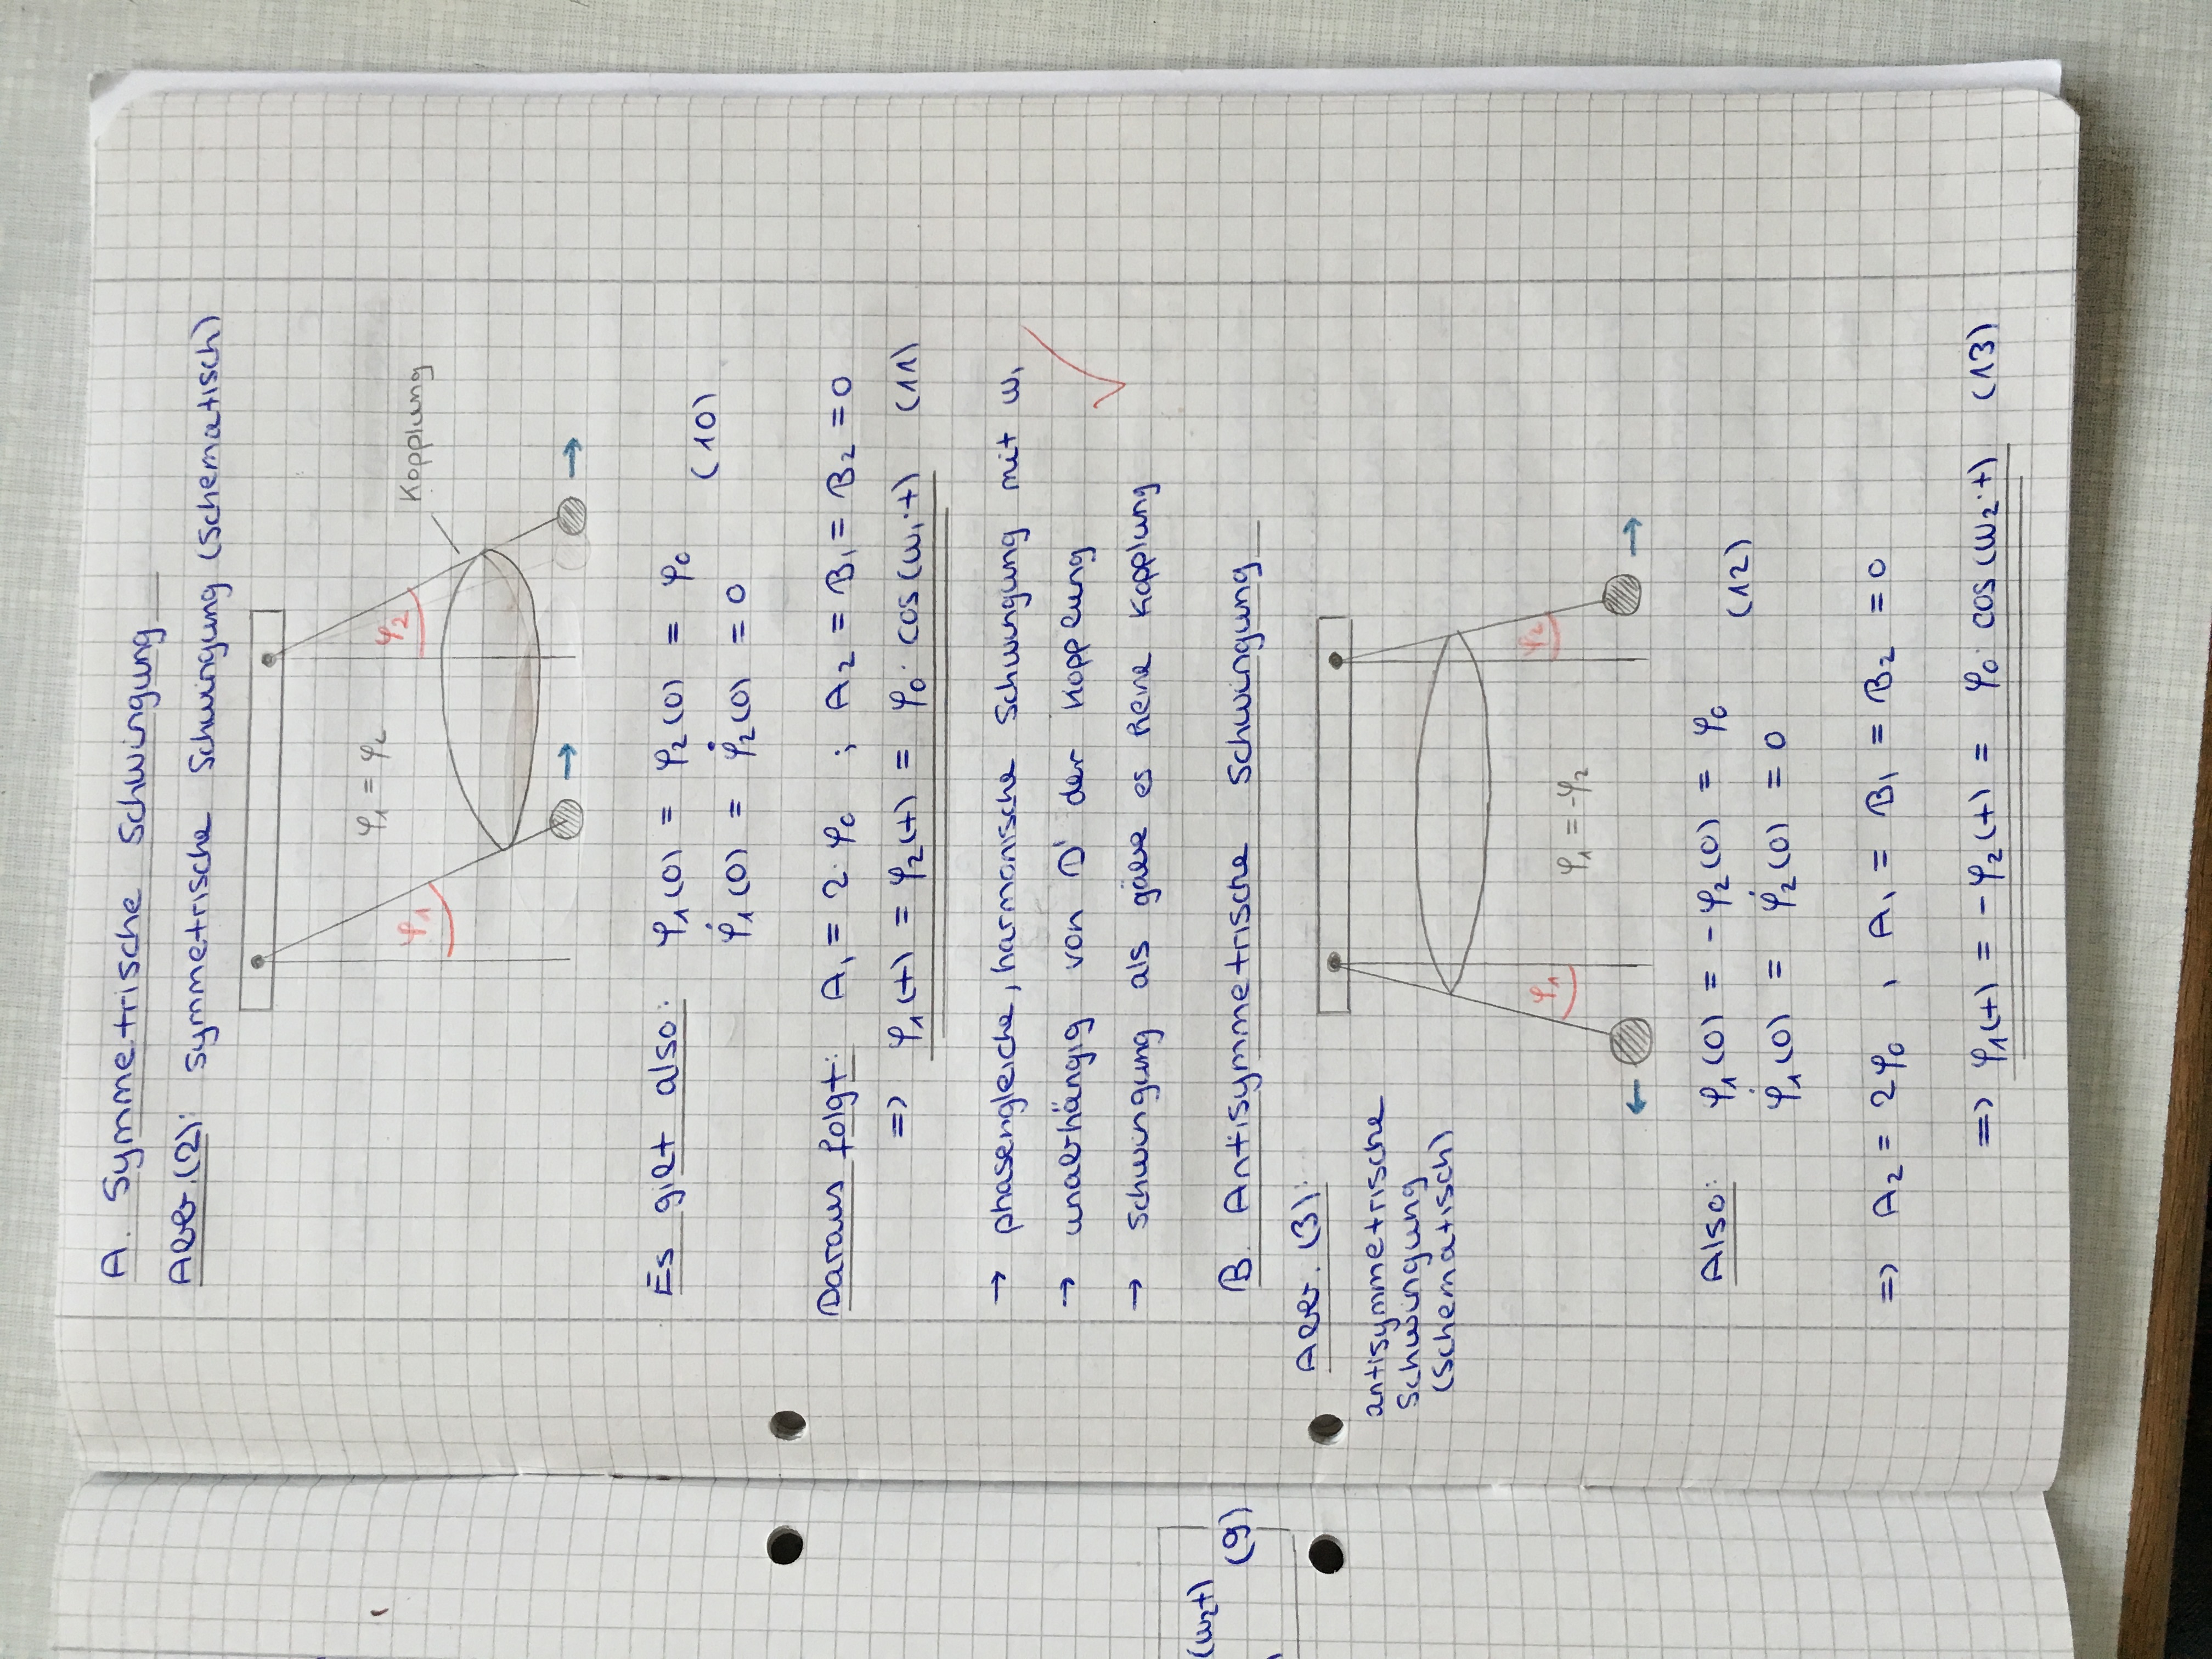 (ω₂t)
(9)
A. Symmetrische Schwingung
Abb. (2): symmetrische Schwingung (schematisch)
φ₁ = φ₂
φ₁
φ₂
Kopplung
Es gilt also: φ₁(0) = φ₂(0) = φ₀
(10)
φ̇₁(0) = φ̇₂(0) = 0
Daraus folgt: A₁ = 2·φ₀ ; A₂ = B₁ = B₂ = 0
=> φ₁(t) = φ₂(t) = φ₀· cos(ω₁·t) (11)
→ phasengleiche, harmonische Schwingung mit ω₁
→ unabhängig von D' der Kopplung
→ Schwingung als gäbe es keine Kopplung
B. Antisymmetrische Schwingung
Abb. (3):
antisymmetrische
Schwingung
(schematisch)
φ₁
φ₂
φ₁ = -φ₂
Also: φ₁(0) = -φ₂(0) = φ₀
(12)
φ̇₁(0) = φ̇₂(0) = 0
=> A₂ = 2φ₀ , A₁ = B₁ = B₂ = 0
=> φ₁(t) = -φ₂(t) = φ₀· cos(ω₂·t) (13)